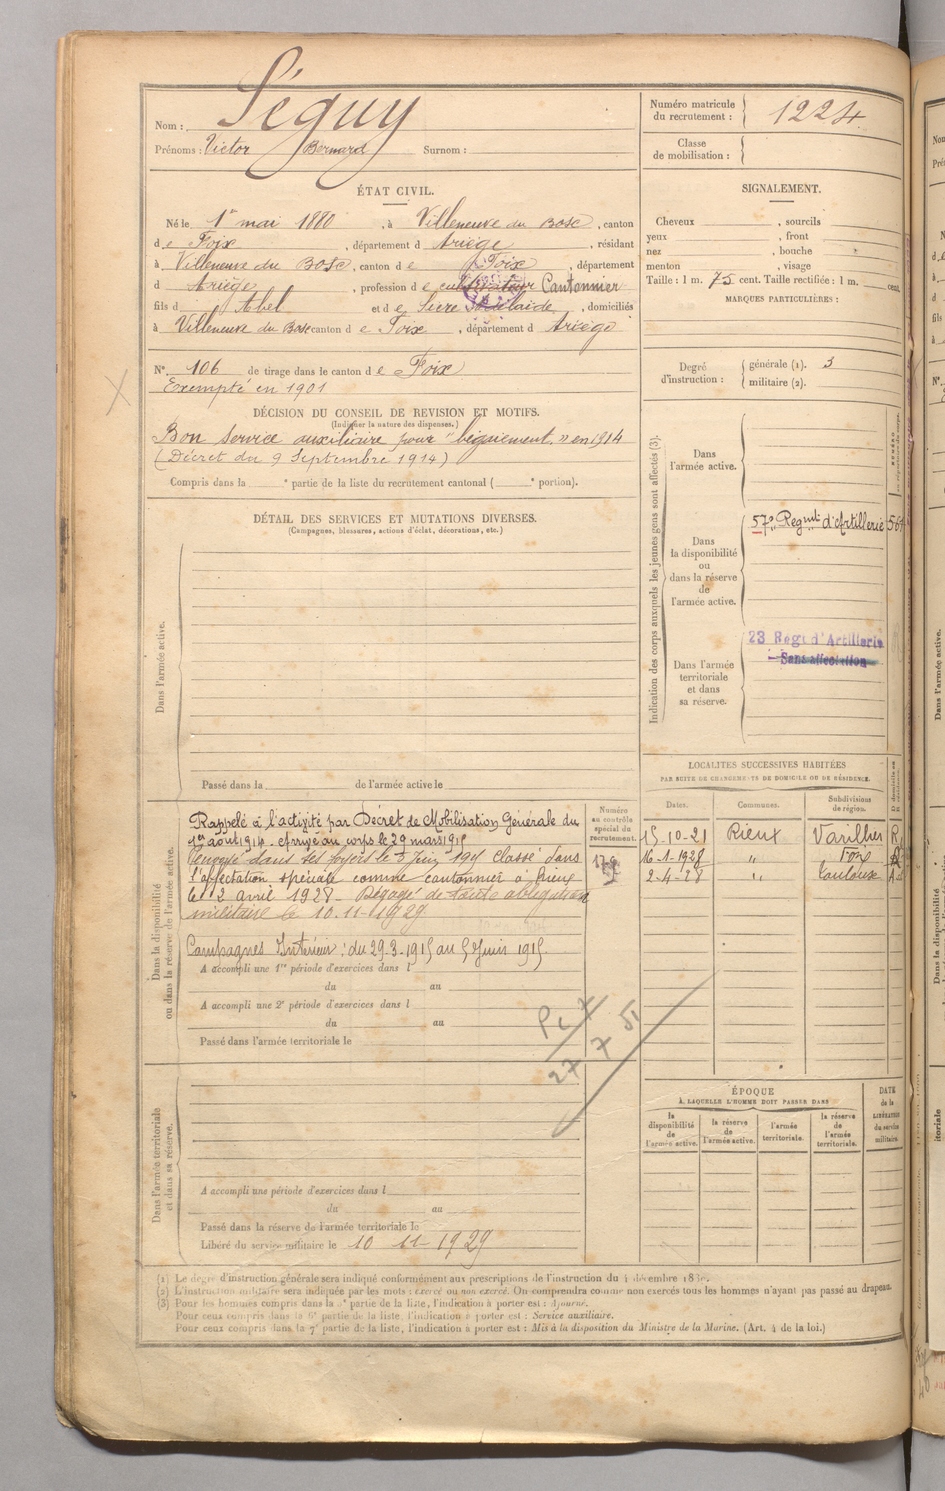 Nom : Séguy
Prénoms : Victor Bernard Surnom :
Numéro matricule du recrutement : 1224
Classe de mobilisation :
ÉTAT CIVIL.
Né le 1er mai 1880, à Villeneuve du Bosc, canton
de Foix, département d Ariège, résidant
à Villeneuve du Bosc, canton de Foix, département
d Ariège, profession de cultivateur Cantonnier
fils d Abel et de Adelaïde, domiciliés
à Villeneuve du Bosc canton de Foix, département d Ariège
SIGNALEMENT.
Cheveux , sourcils
yeux , front
nez , bouche
menton , visage
Taille : 1 m. 75 cent. Taille rectifiée : 1 m. cent.
MARQUES PARTICULIÈRES :
N° 106 de tirage dans le canton de Foix
Exempté en 1901
Degré d'instruction : générale (1). 3
militaire (2).
DÉCISION DU CONSEIL DE REVISION ET MOTIFS.
(Indiquer la nature des dispenses.)
Bon service auxiliaire pour "bégaiement" en 1914
(Décret du 9 Septembre 1914)
Compris dans la e partie de la liste du recrutement cantonal ( e portion).
DÉTAIL DES SERVICES ET MUTATIONS DIVERSES.
(Campagnes, blessures, actions d'éclat, décorations, etc.)
Dans l'armée active.
Passé dans la de l'armée active le
Indication des corps auxquels les jeunes gens sont affectés (3).
Dans l'armée active.
Dans la disponibilité ou dans la réserve de l'armée active.
57e Regmt d'Artillerie
Dans l'armée territoriale et dans sa réserve.
23 Regt d'Artillerie
Sans affectation
Dans la disponibilité ou dans la réserve de l'armée active.
Rappelé à l'activité par Décret de Mobilisation Générale du
1er août 1914. Arrivé au corps le 29 mars 1915
Renvoyé dans ses foyers le 5 juin 1915 classé dans
l'affectation spéciale comme cantonnier à Rieux
le 2 avril 1928. Dégagé de toute obligation
militaire le 10.11.1929
Campagnes Intérieur : du 29-3-1915 au 5 Juin 1915
A accompli une 1re période d'exercices dans l
du au
A accompli une 2e période d'exercices dans l
du au
Passé dans l'armée territoriale le
Numéro au contrôle spécial du recrutement.
LOCALITÉS SUCCESSIVES HABITÉES
PAR SUITE DE CHANGEMENTS DE DOMICILE OU DE RÉSIDENCE.
Dates. Communes. Subdivisions de région.
15-10-21 Rieux Varilhes R
16-1-1928 " Foix R
2-4-28 " Toulouse
27 7 51
Dans l'armée territoriale et dans sa réserve.
A accompli une période d'exercices dans l
du au
Passé dans la réserve de l'armée territoriale le
Libéré du service militaire le 10 11 1929
ÉPOQUE
À LAQUELLE L'HOMME DOIT PASSER DANS
la disponibilité de l'armée active.
la réserve de l'armée active.
l'armée territoriale.
la réserve de l'armée territoriale.
DATE de la LIBÉRATION du service militaire.
(1) Le degré d'instruction générale sera indiqué conformément aux prescriptions de l'instruction du 4 décembre
(2) L'instruction militaire sera indiquée par les mots : exercé ou non exercé. On comprendra comme non exercés tous les hommes n'ayant pas passé au drapeau.
(3) Pour les hommes compris dans la e partie de la liste, l'indication à porter est : Ajourné.
Pour ceux compris dans la 6e partie de la liste, l'indication à porter est : Service auxiliaire.
Pour ceux compris dans la 7e partie de la liste, l'indication à porter est : Mis à la disposition du Ministre de la Marine. (Art. 4 de la loi.)